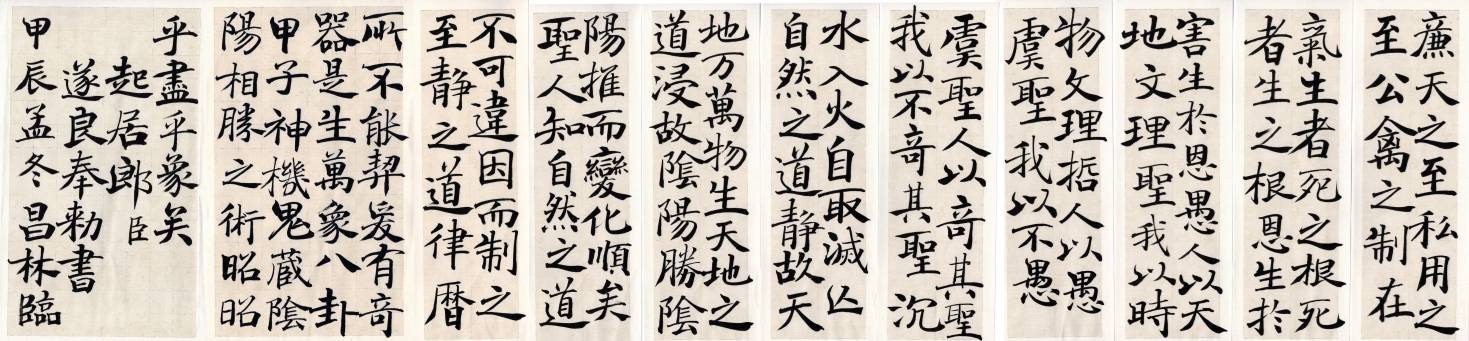 廉天之至私用之
至公禽之制在
氣生者死之根死
者生之根恩生於
害生於恩愚人以天
地文理聖我以時
物文理哲人以愚
虞聖我以不愚
虞聖人以奇其聖
我以不奇其聖沉
水入火自取滅亡
自然之道静故天
地万萬物生天地之
道浸故陰陽勝陰
陽推而變化順矣
聖人知自然之道
不可違因而制之
至静之道律暦
所不能契爰有奇
器是生萬象八卦
甲子神機鬼蔵陰
陽相勝之術昭昭
乎盡乎象矣
起居郎臣
遂良奉勅書
甲辰孟冬昌林臨